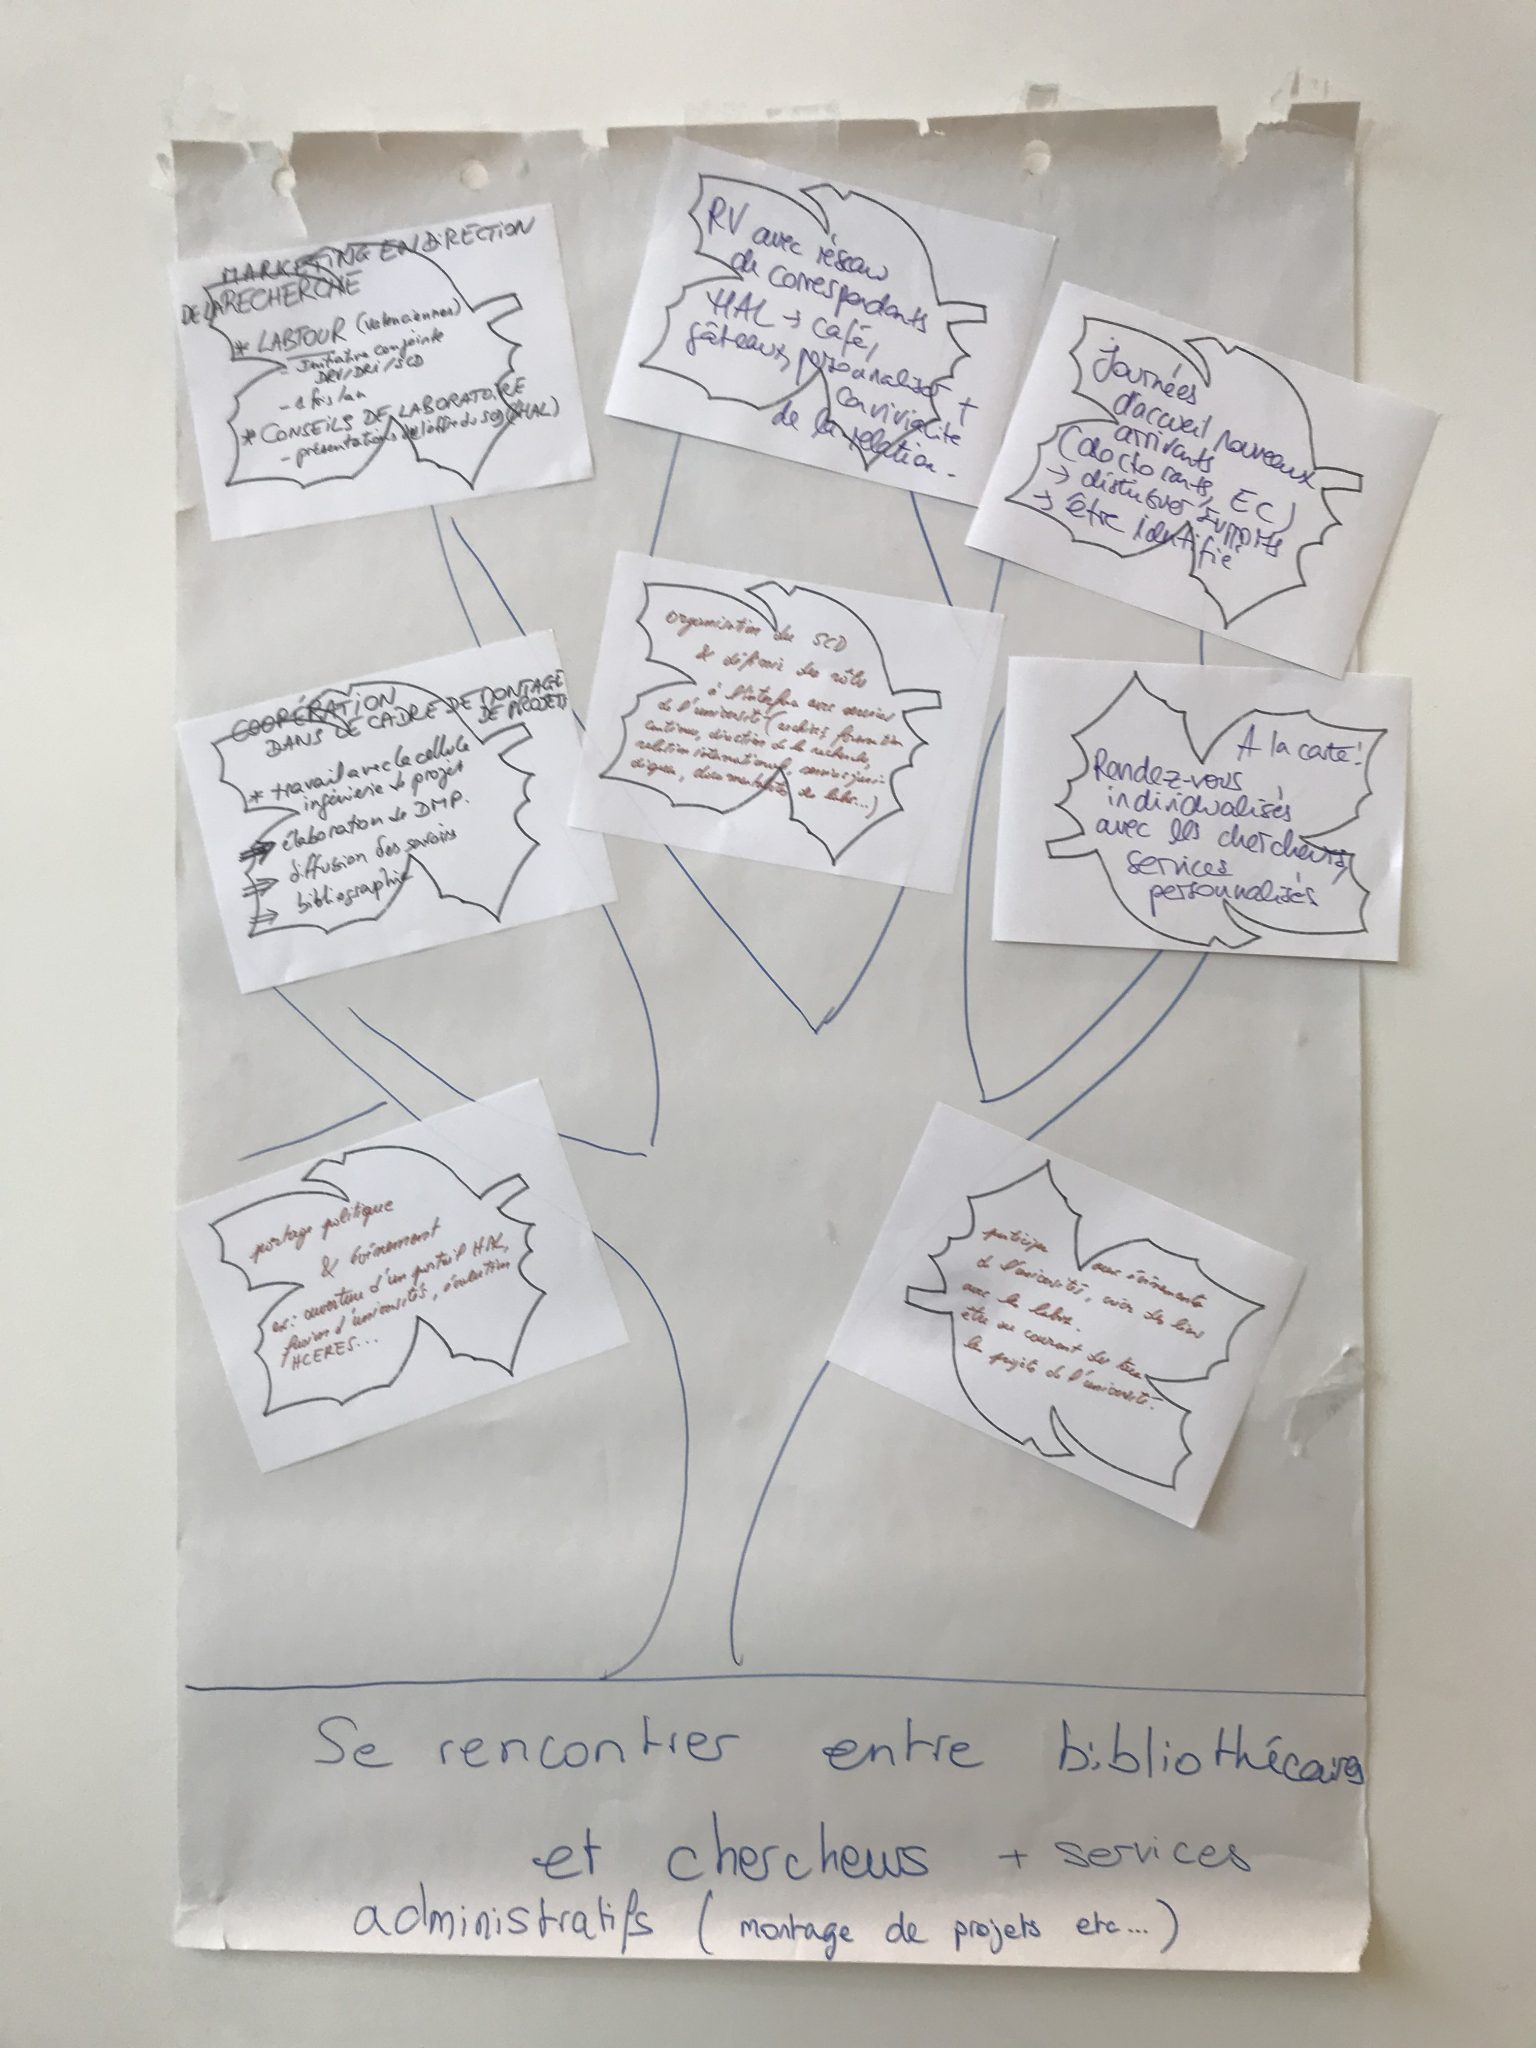 MARKETING EN DIRECTION
DE LA RECHERCHE
* LABTOUR (Valenciennes)
- Initiative conjointe
DRV/DRI/SCD
- 1 fois/an
* CONSEILS DE LABORATOIRE
- présentations de l'offre du SCD (HAL)
RV avec réseau
de correspondants
HAL → café,
gâteaux, personnaliser +
convivialité
de la relation.
Journées
d'accueil nouveaux
arrivants
(doctorants, EC)
→ distribuer supports
→ être identifié
COOPÉRATION
DANS LE CADRE DE MONTAGE
DE PROJETS
* travail avec la cellule
ingénierie de projet
⇒ élaboration de DMP.
⇒ diffusion des savoirs
⇒ bibliographie
organisation du SCD
& définir des rôles
à l'interface avec services
de l'université (archives, formation
continue, direction de la recherche,
relation internationale, service juri-
dique, documentaliste de labo...)
A la carte!
Rendez-vous
individualisés
avec les chercheurs,
services
personnalisés
portage politique
& évènement
ex: ouverture d'un portail HAL,
fusion d'universités, évolution
HCERES...
participer aux événements
de l'université, créer des liens
avec les labos.
être au courant des
les projets de l'université.
Se rencontrer entre bibliothécaires
et chercheurs + services
administratifs (montage de projets etc...)